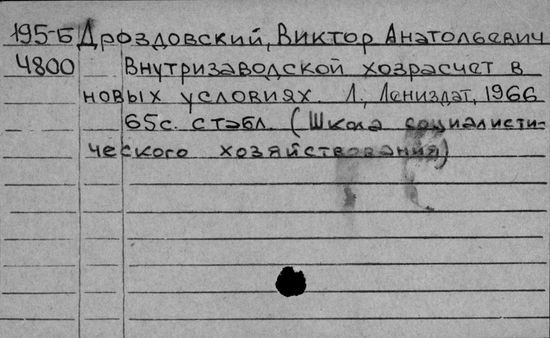 195-Б Дроздовский, Виктор Анатольевич
4800 Внутризаводской хозрасчет в
новых условиях. Л., Лениздат, 1966
65с. с табл. (Школа социалисти-
ческого хозяйствования)